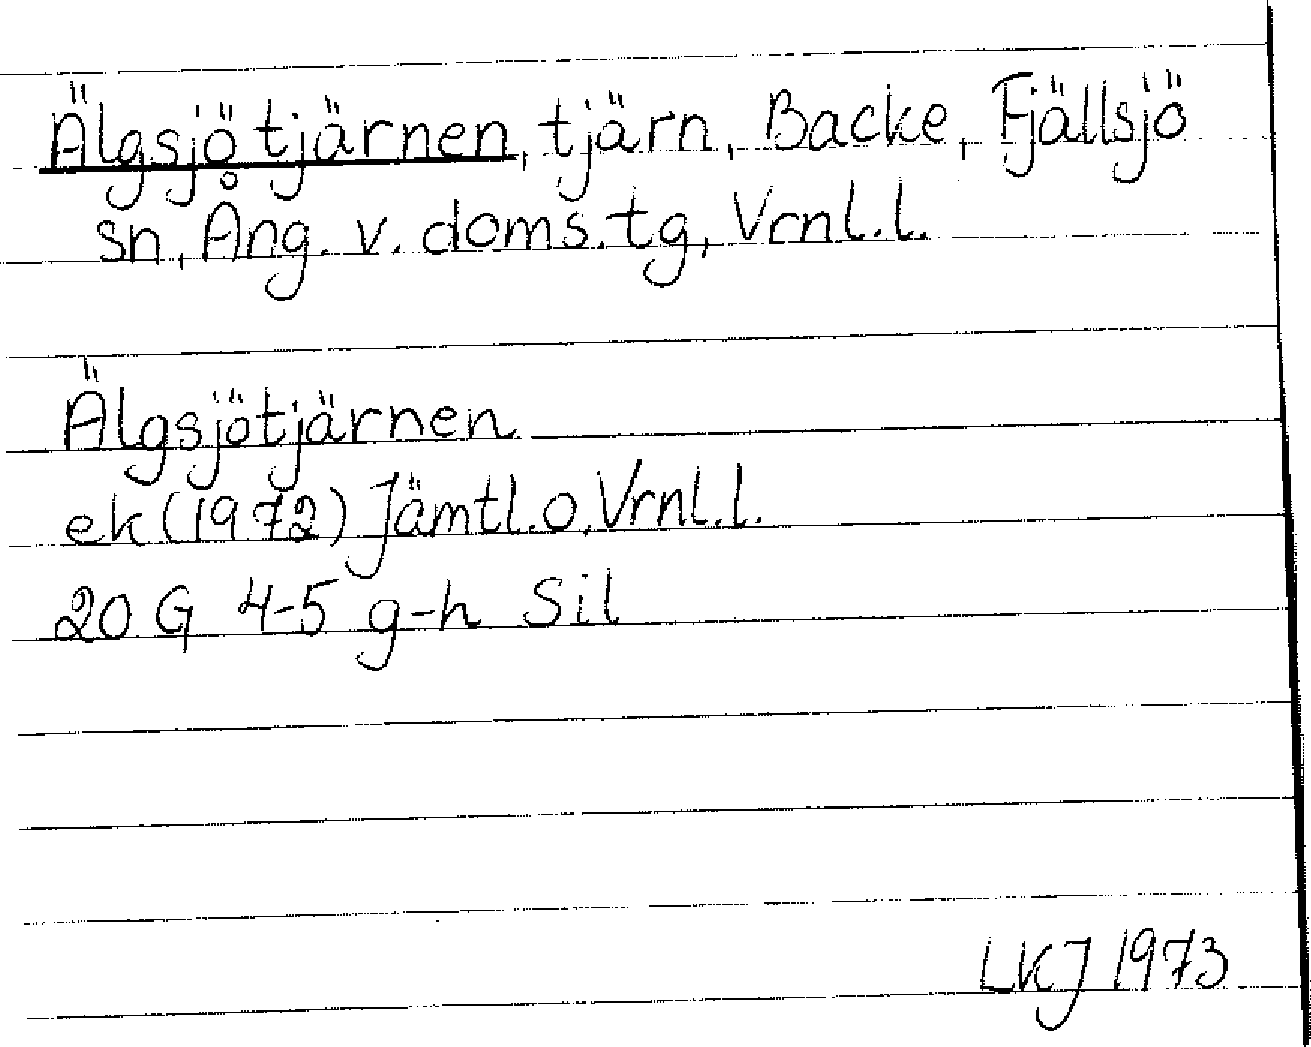 Älgsjötjärnen, tjärn, Backe, Fjällsjö
sn, Ång. v. doms. tg, Vrnl. l.
Älgsjötjärnen
ek (1972) Jämtl. o. Vrnl. l.
20 G 4-5 g-h Sil
LKJ 1973